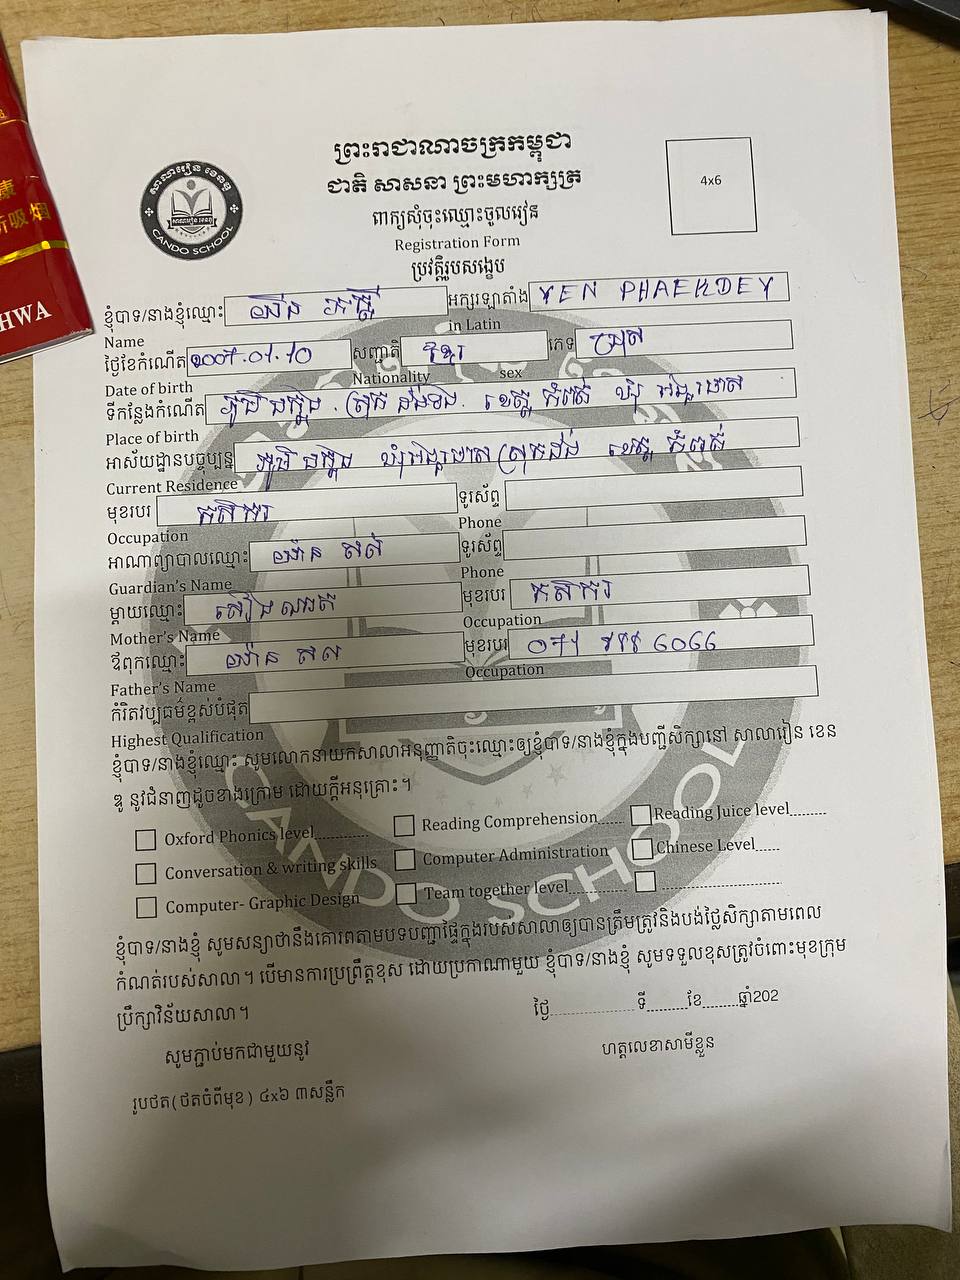 ព្រះរាជាណាចក្រកម្ពុជា
ជាតិ សាសនា ព្រះមហាក្សត្រ
ពាក្យសុំចុះឈ្មោះចូលរៀន
Registration Form
ប្រវត្តិរូបសង្ខេប
4x6
សាលារៀន ខេនឌូ
CANDO SCHOOL
HWA
ខ្ញុំបាទ/នាងខ្ញុំឈ្មោះ យ៉ែន ភក្ដី អក្សរឡាតាំង YEN PHAEKDEY
Name in Latin
ថ្ងៃខែកំណើត 2007.01.10 សញ្ជាតិ ខ្មែរ ភេទ ប្រុស
Date of birth Nationality sex
ទីកន្លែងកំណើត ភូមិ ខេត្ត កំពត ឃុំ
Place of birth
អាស័យដ្ឋានបច្ចុប្បន្ន ភូមិ ឃុំ ស្រុកដងទង់ ខេត្ត កំពត
Current Residence
មុខរបរ កសិករ ទូរស័ព្ទ
Occupation Phone
អាណាព្យាបាលឈ្មោះ ទូរស័ព្ទ
Guardian's Name Phone
ម្តាយឈ្មោះ មុខរបរ កសិករ
Mother's Name Occupation
ឪពុកឈ្មោះ មុខរបរ
Father's Name Occupation
កំរិតវប្បធម៌ខ្ពស់បំផុត
Highest Qualification
ខ្ញុំបាទ/នាងខ្ញុំឈ្មោះ សូមលោកនាយកសាលាអនុញ្ញាតិចុះឈ្មោះឲ្យខ្ញុំបាទ/នាងខ្ញុំក្នុងបញ្ជីសិក្សានៅ សាលារៀន ខេន
ឌូ នូវជំនាញដូចខាងក្រោម ដោយក្តីអនុគ្រោះ។
Oxford Phonics level............ Reading Comprehension...... Reading Juice level.........
Conversation & writing skills Computer Administration Chinese Level......
Computer- Graphic Design Team together level..............
CANDO SCHOOL
ខ្ញុំបាទ/នាងខ្ញុំ សូមសន្យាថានឹងគោរពតាមបទបញ្ជាផ្ទៃក្នុងរបស់សាលាឲ្យបានត្រឹមត្រូវនិងបង់ថ្លៃសិក្សាតាមពេល
កំណត់របស់សាលា។ បើមានការប្រព្រឹត្តខុស ដោយប្រកាណាមួយ ខ្ញុំបាទ/នាងខ្ញុំ សូមទទួលខុសត្រូវចំពោះមុខក្រុម
ប្រឹក្សាវិន័យសាលា។
ថ្ងៃ.................... ទី..........ខែ.........ឆ្នាំ202
សូមភ្ជាប់មកជាមួយនូវ ហត្ថលេខាសាមីខ្លួន
រូបថត(ថតចំពីមុខ) ៤x៦ ៣សន្លឹក